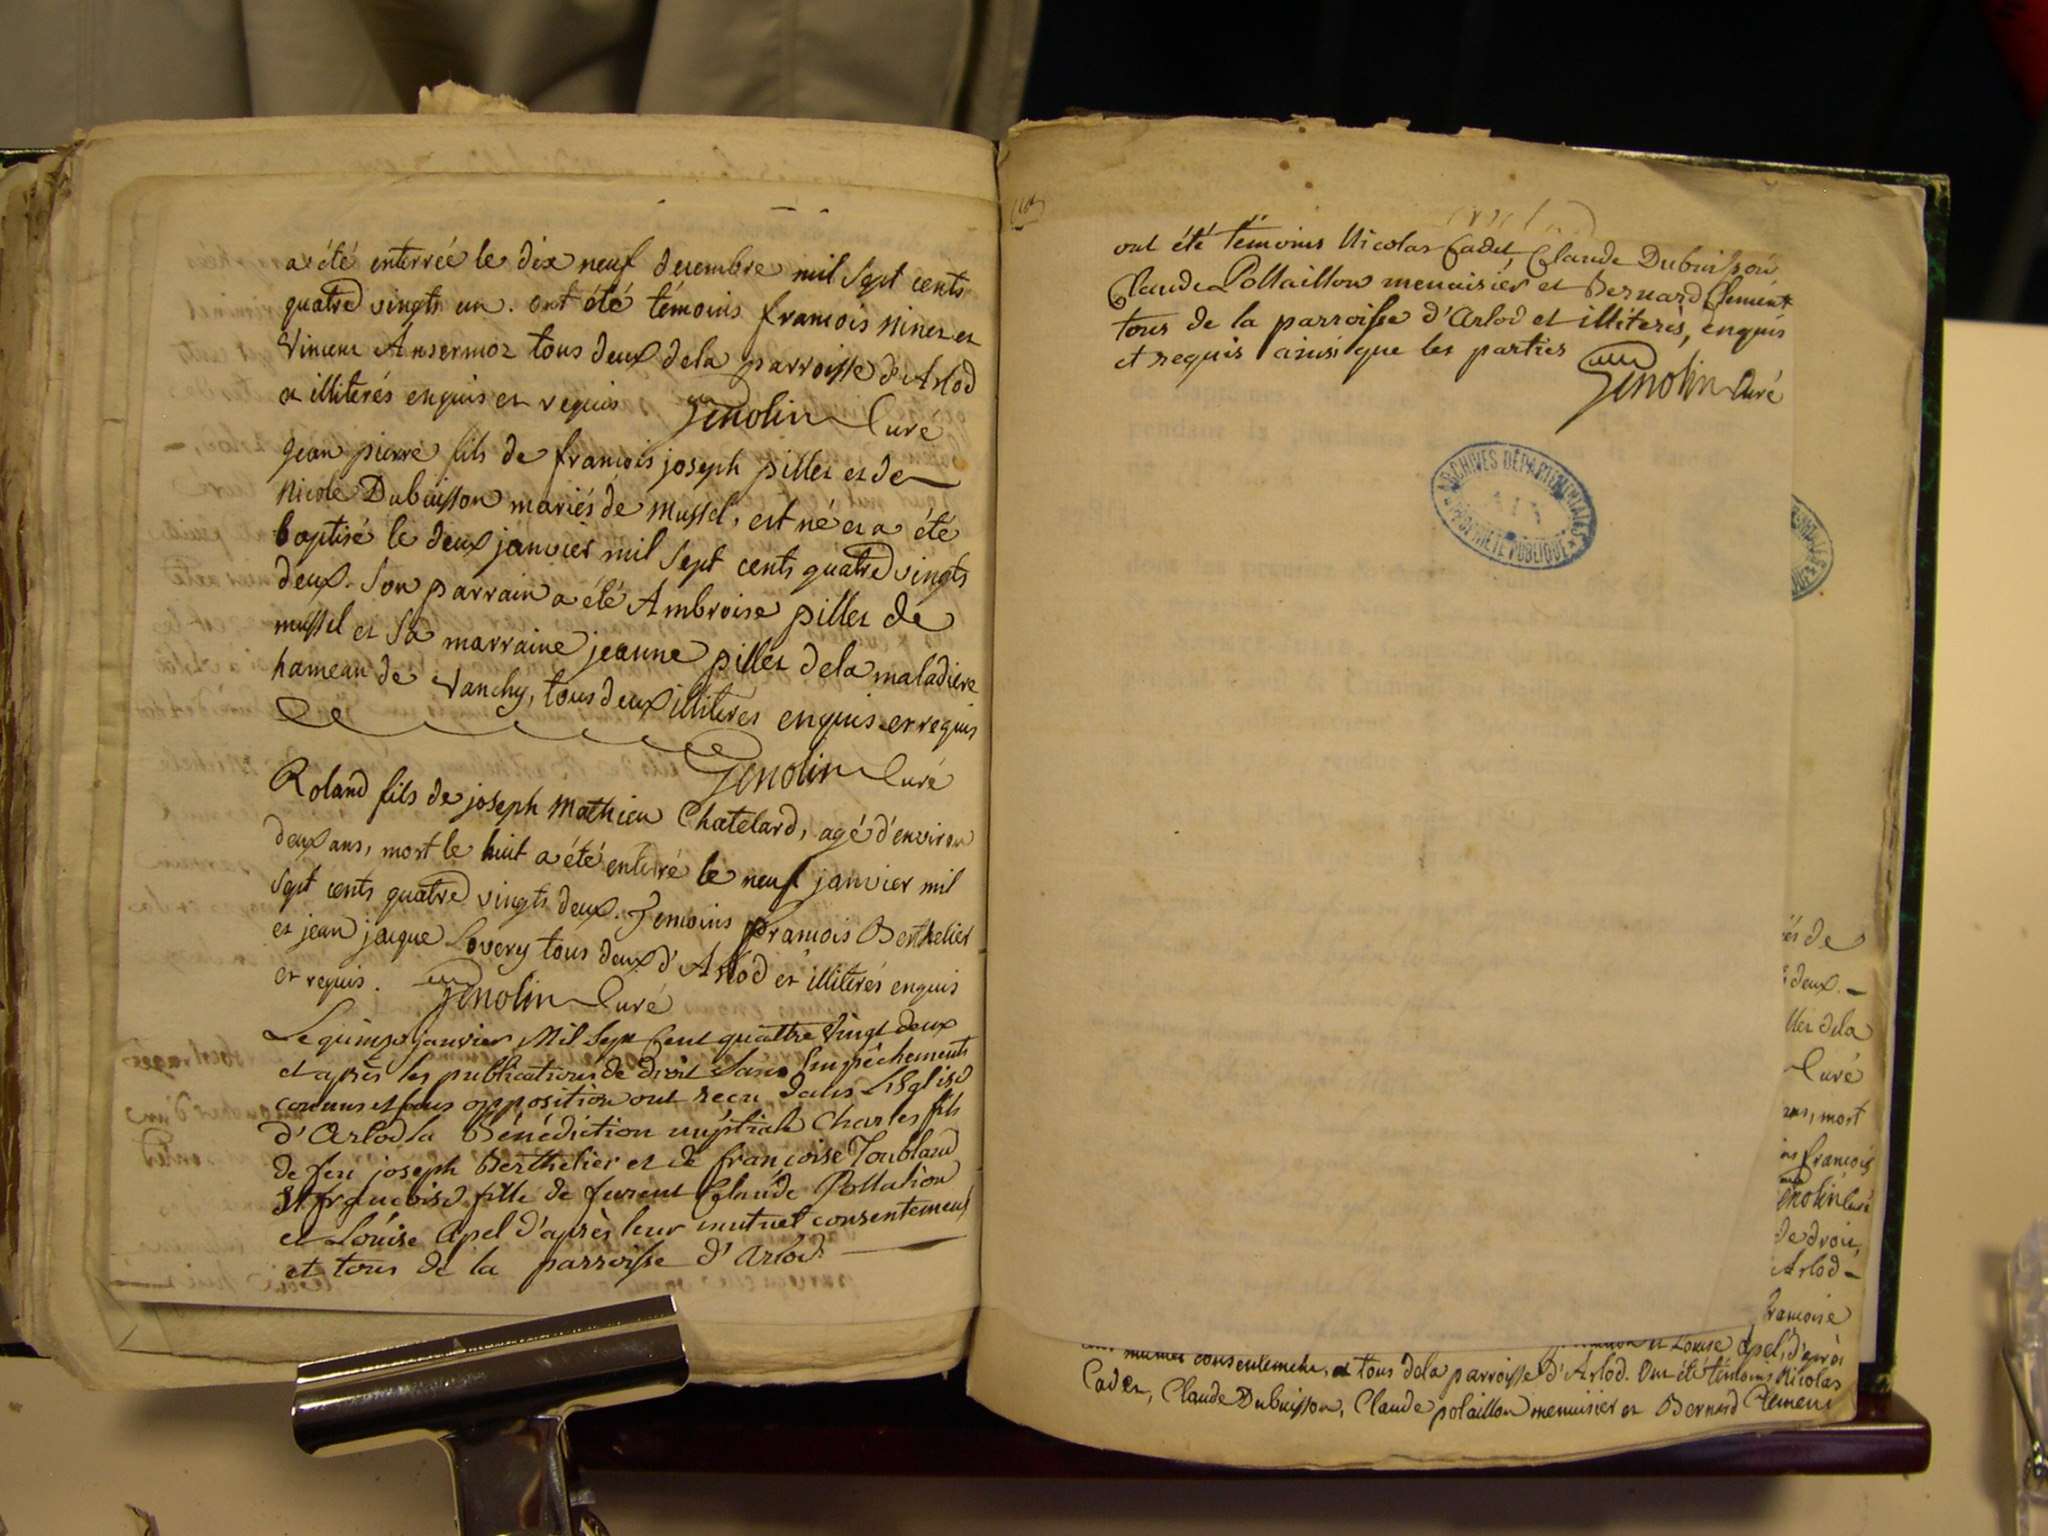 a été enterrée le dix neuf decembre mil sept cents
quatre vingts un. ont été témoins francois ninet et
Vincent Ansermoz tous deux dela parroisse d'Arlod
et illiterés enquis et requis Genolin Curé
Jean pierre fils de francois joseph pillet et de
Nicole Dubuisson mariés de mussel, est né et a été
baptisé le deux janvier mil sept cents quatre vingts
deux. Son parrain a été Ambroise pillet de
mussel et sa marraine jeanne pillet dela maladiere
hameau de Vanchy, tous deux illiteres enquis et requis
Genolin Curé
Roland fils de joseph Mathieu Chatelard, agé d'environ
deux ans, mort le huit a été enterré le neuf janvier mil
sept cents quatre vingts deux. Temoins francois Berthelier
et jean jacque Lovery tous deux d'Arlod et illiterés enquis
et requis. Genolin Curé
Le quinze janvier Mil Sept Cent quattre Vingt deux
et après les publications de droit Sans Empêchements
connus et sans opposition ont recu dans L'Eglise
d'Arlod la Bénédiction nuptiale Charles fils
de feu joseph Berthelier et de françoise Toubland
Et francoise fille de furent Claude Pollation
et Louise Apel d'après leur mutuel consentement
et tous de la parroisse d'Arlod
ont été témoins Nicolas Cadet Claude Dubuisson
Claude Pollaillon menuisier et Bernard Clement
tous de la parroisse d'Arlod et illiterés, enquis
et requis ainsi que les parties
Genolin Curé
ARCHIVES DÉPARTEMENTALES
PROPRIÉTÉ PUBLIQUE
de
deux.
dela
Curé
mort
francois
Genolin Curé
de droit,
Arlod
francoise
et Louise Apel, d'après
consentement, et tous dela parroisse d'Arlod. Ont été témoins Nicolas
Cadet, Claude Dubuisson, Claude polaillon menuisier et Bernard Clement